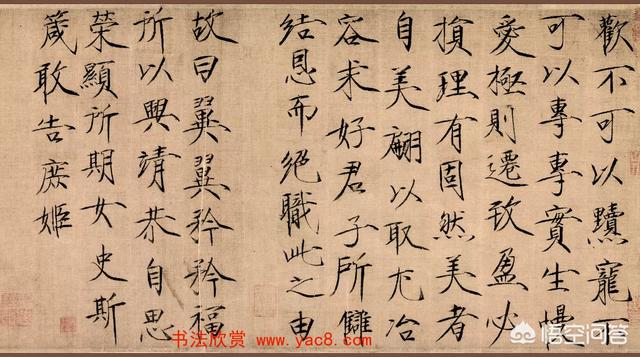 歡不可以黷寵不
可以專專實生慢
愛極則遷致盈必
損理有固然美者
自美翩以取尤冶
容求好君子所讎
結恩而絕職此之由
故曰翼翼矜矜福
所以興靖恭自思
榮顯所期女史斯
箴敢告庶姬
书法欣赏 www.yac8.com
悟空问答